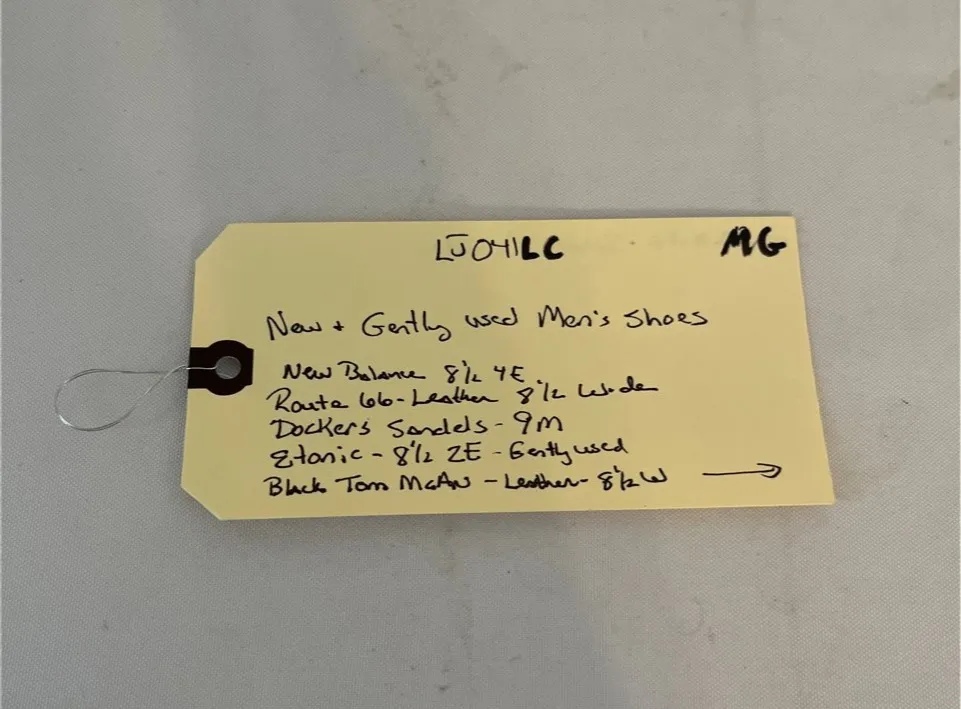 LJ041LC MG
New + Gently used Men's Shoes
New Balance 8 1/2 4E
Route 66 - Leather 8 1/2 Wide
Dockers Sandels - 9M
Etonic - 8 1/2 2E - Gently used
Black Tom McAn - Leather - 8 1/2 W →